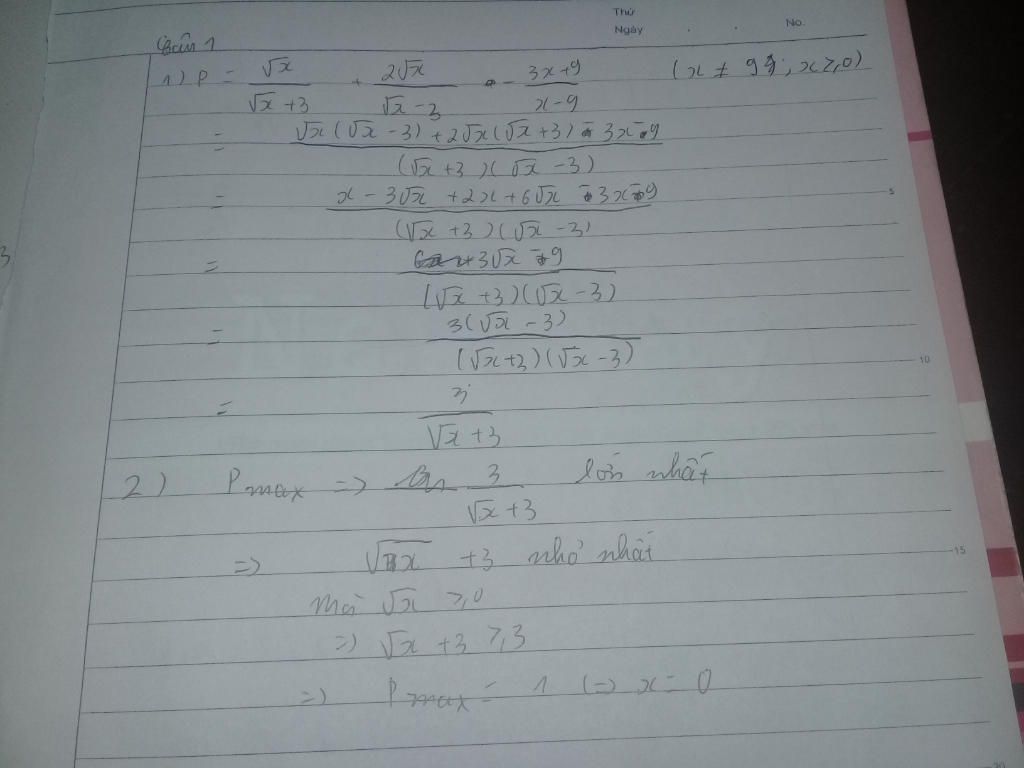 Thứ
Ngày . . No.
Câu 1
1) P = √x / (√x + 3) + 2√x / (√x - 3) - (3x + 9) / (x - 9) (x ≠ 9; x ≥ 0)
= (√x(√x - 3) + 2√x(√x + 3) - 3x - 9) / ((√x + 3)(√x - 3))
= (x - 3√x + 2x + 6√x - 3x - 9) / ((√x + 3)(√x - 3))
= (3√x - 9) / ((√x + 3)(√x - 3))
= 3(√x - 3) / ((√x + 3)(√x - 3))
= 3 / (√x + 3)
2) Pmax => 3 / (√x + 3) lớn nhất
=> √x + 3 nhỏ nhất
Mà √x ≥ 0
=> √x + 3 ≥ 3
=> Pmax = 1 (=) x = 0
5
10
15
20
3